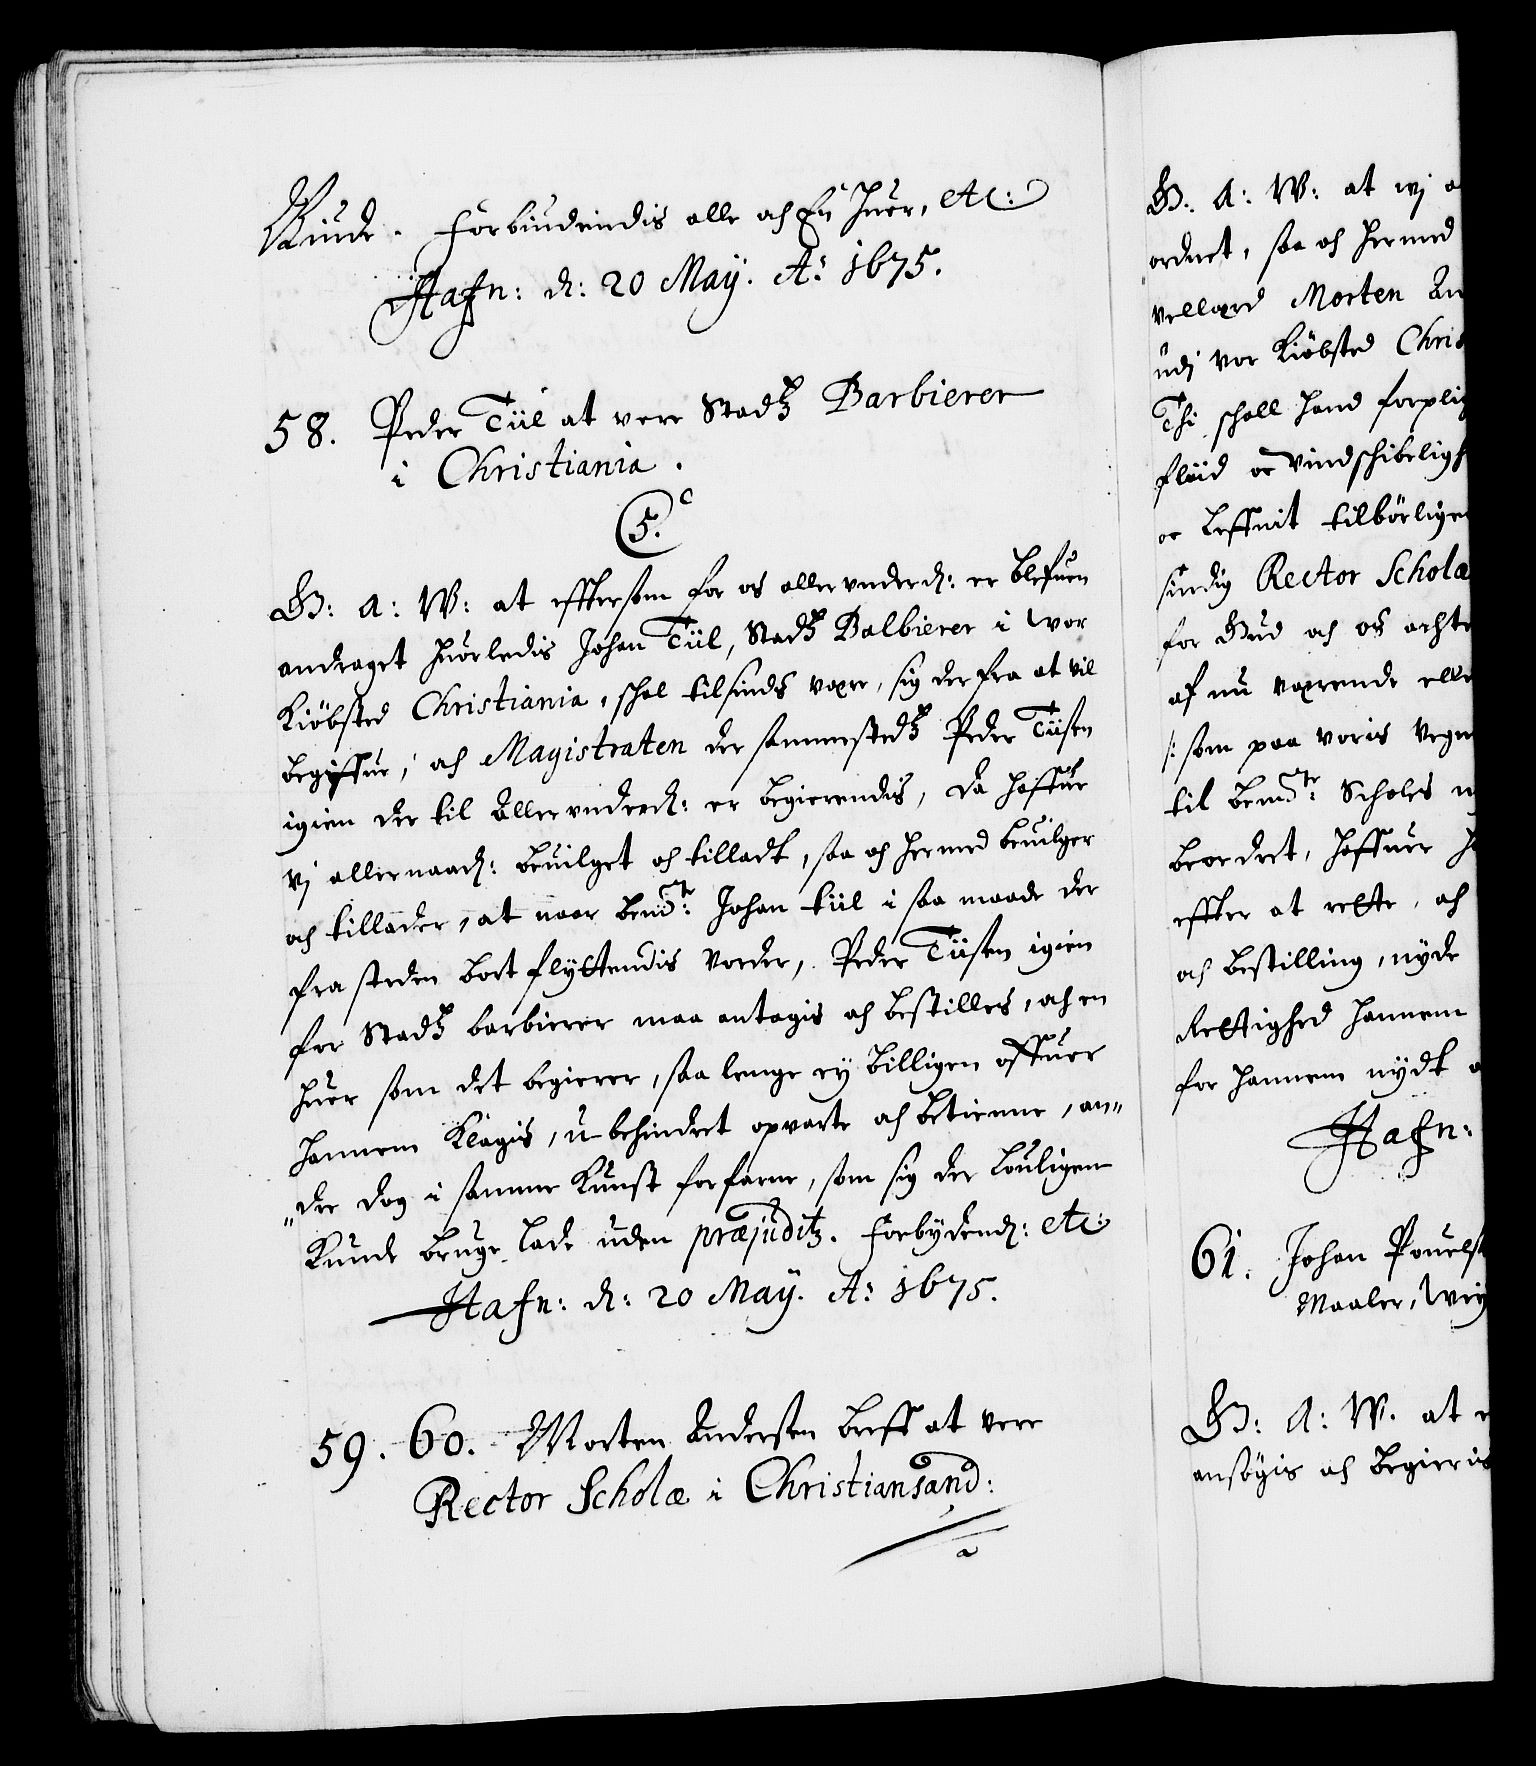 Kunde. Forbiudendis alle och En huer, etc:
Hafn: d: 20 May. Ao 1675.
58. Peder Tiil at vere Stadtz Barbierer
i Christiania.
5.
G: A: W: at efftersom for os allerunderd: er blefuen
andraget huorledis Johan Tiil, Stadtz Balbierer i wor
Kiöbsted Christiania, schal tilsinds være, sig der fra at vil
begiffue, och Magistraten der sammestedtz Peder Tiisen
igien der til allerunderd: er begierendis, da haffue
vj allernaad: beuilget och tilladt, saa och hermed beuilger
och tillader, at naar bemte: Johan tiil i saa maade der
fra steden bort flyttendis vorder, Peder Tiisen igien
for Stadtz barbierer maa antagis och bestilles, och en
huer som det begierer, saa lenge ey billigen offuer
hannem Klagis, u-behindret opvarte och betienne, an„
„dre dog i samme Kunst forfarne, som sig der louligen
Kunde bruge lade uden præjuditz. Forbydend: etc:
Hafn: d: 20 May. Ao 1675.
59. 60. Morten Andersen breff at vere
Rector Scholæ i Christiansand:
G: A: W: at wj
ordnet, saa och hermed
vellærd Morten An
udj vor Kiöbsted Chris
Thi schall hand forplig
fliid oc vindschibeligh
oc leffnit tilbörligen
sindig Rector Scholæ
for Gud och os acht
af nu værende elle
/: som paa voris vegn
til bemte: Scholes
beordret, haffuer h
effter at rette, och
och bestilling, nyde
Rettighed hannem
for hannem nydt
Hafn:
61. Johan Pouels
Maaler, Wey
G: A: W. at
ansögis och begieris